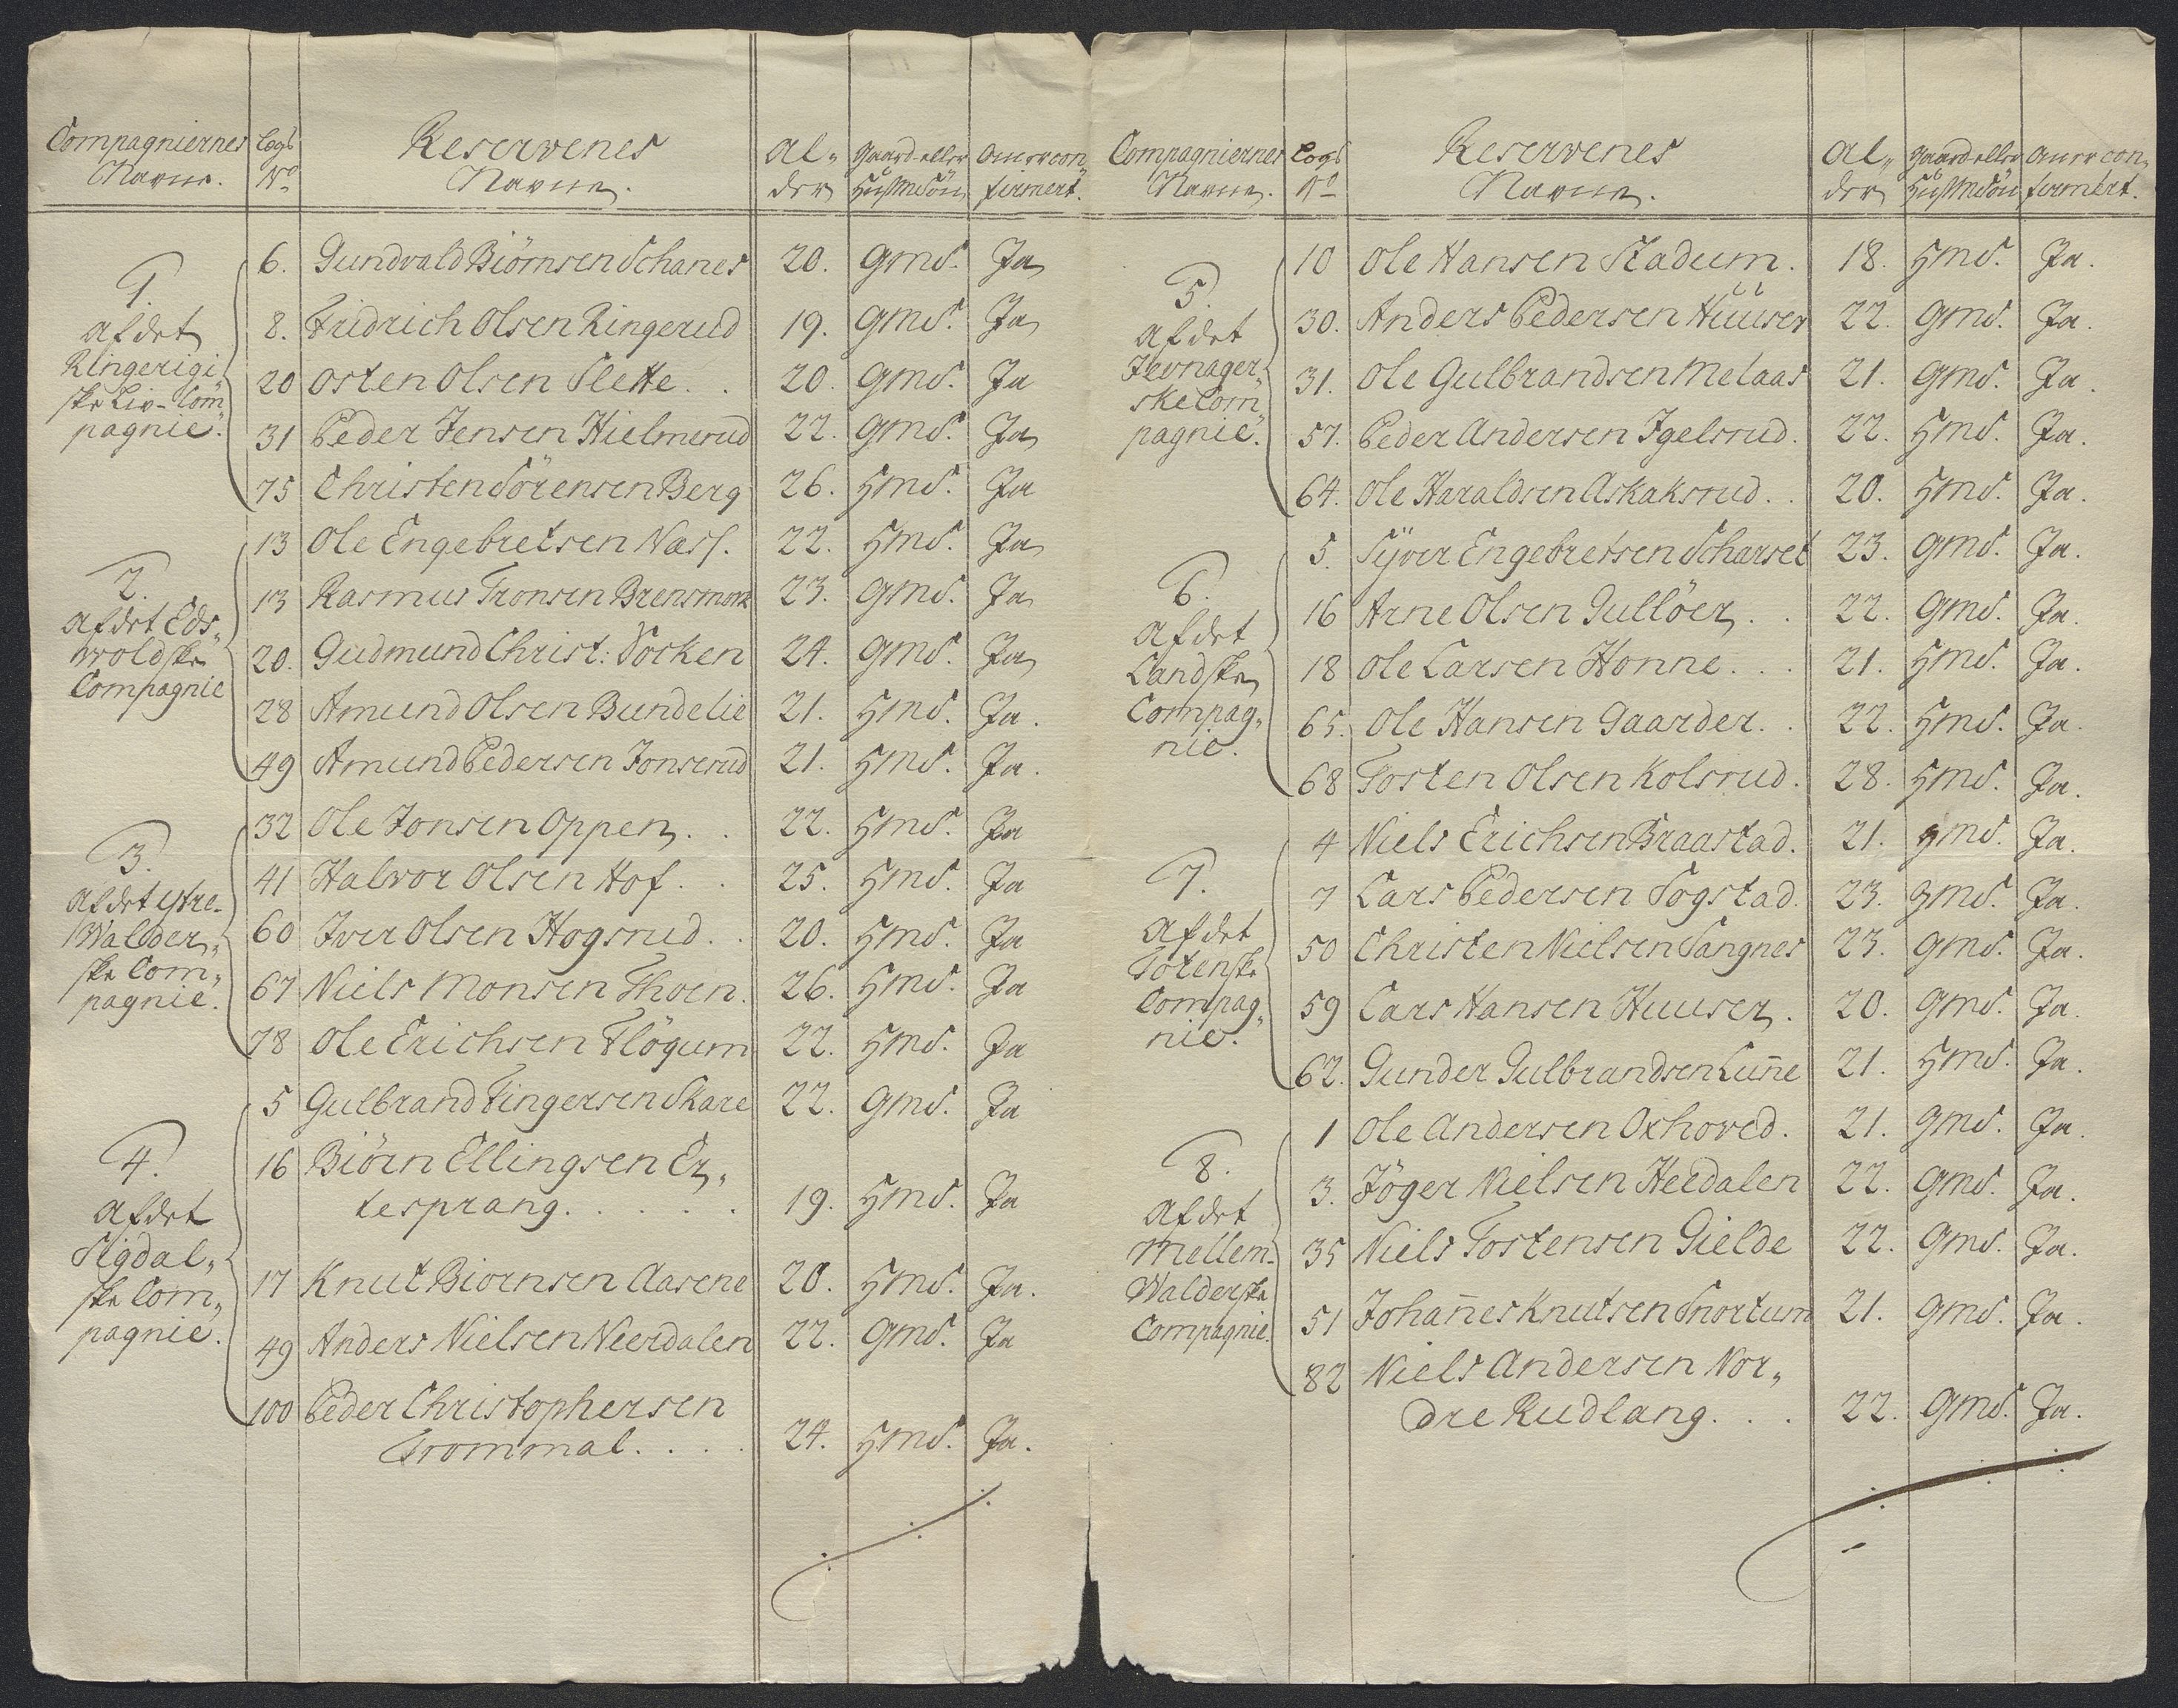 Compagniernes Navne. | Lægs No | Reservenes Navne. | Al„der | gaard eller Huusmds Sön | om er con„firmert.
1. af det Ringerigi„ske Liv-Com„pagnie.
6. Gundvald Biörnsen Schanes 20. Gmd S. Ja
8. Fridrich Olsen Ringerud 19. GmdS. Ja
20 Osten Olsen Slette . . 20. GmdS. Ja
31 Peder Jensen Hielmerud 22. GmdS. Ja
75 Christen Sörensen Berg 26. HmdS. Ja
2. af det Eds„woldske Compagnie
13 Ole Engebretsen Næss. 22. HmdS. Ja
13 Rasmus Tronsen Brensmork 23. GmdS. Ja
20. Gudmund Christ: Tosken 24. GmdS. Ja
28 Amund Olsen Bundelie 21. HmdS. Ja.
49 Amund Pedersen Jonserud 21. HmdS. Ja.
3. af det ytre-Walder„ske Com„pagnie.
32 Ole Jonsen Oppen . . 22. HmdS. Ja
41 Halvor Olsen Hof . . 25. HmdS. Ja
60 Iver Olsen Hogsrud . . 20. HmdS. Ja
67 Niels Monsen Thoen. 26. HmdS. Ja
78 Ole Erichsen Flögum 22. HmdS. Ja
4. af det Sigdal„ske Com„pagnie.
5 Gulbrand Fingersen Skare 22. GmdS. Ja
16 Biörn Ellingsen Er„
tesprang. . . . . 19. HmdS. Ja
17 Knut Biörnsen Aasene 20. HmdS. Ja.
49 Anders Nielsen Neerdalen 22. GmdS. Ja
100 Peder Christophersen
Trommal. . . . 24. HmdS. Ja.
Compagniernes Navne. | Lægs No | Reservenes Navne. | Al„der | gaard eller Huusmds Sön | om er con„firmert.
5. af det Jevnager„ske Com„pagnie.
10 Ole Hansen Stadum. 18. HmdS. Ja.
30. Anders Pedersen Huuser 22. GmdS. Ja.
31. Ole Gulbrandsen Melaas 21. GmdS. Ja.
57. Peder Andersen Igelsrud. 22. HmdS. Ja.
64. Ole Haraldsen Askaksrud. . 20. HmdS. Ja.
6. af det Landske Compag„nie.
5. Syver Engebretsen Scharset 23. GmdS. Ja.
16 Arne Olsen Gullöer . . 22. GmdS. Ja.
18 Ole Larsen Honne. . . 21. HmdS. Ja.
65. Ole Hansen Gaarder. . 22. HmdS. Ja.
68 Tosten Olsen Kolsrud. 28. HmdS. Ja.
7. af det Totenske Compag„nie.
4 Niels Erichsen Braastad. 21. GmdS. Ja.
7 Lars Pedersen Sogstad. 23. GmdS. Ja.
50 Christen Nielsen Sangnes 23. GmdS. Ja.
59 Lars Hansen Huuser. 20. GmdS. Ja.
62. Gunder Gulbrandsen Lun̄e 21. HmdS. Ja.
8. af det Mellem-Walderske Compagnie.
1 Ole Andersen Oxhoved. 21. GmdS. Ja.
3. Jöger Nielsen Heedalen 22. GmdS. Ja.
35 Niels Tostensen Gielde 22. GmdS. Ja.
51 Johan̄es Knutsen Snortum 21. GmdS. Ja.
82 Niels Andersen Nor„
dre Rudlang. . . 22. GmdS. Ja.